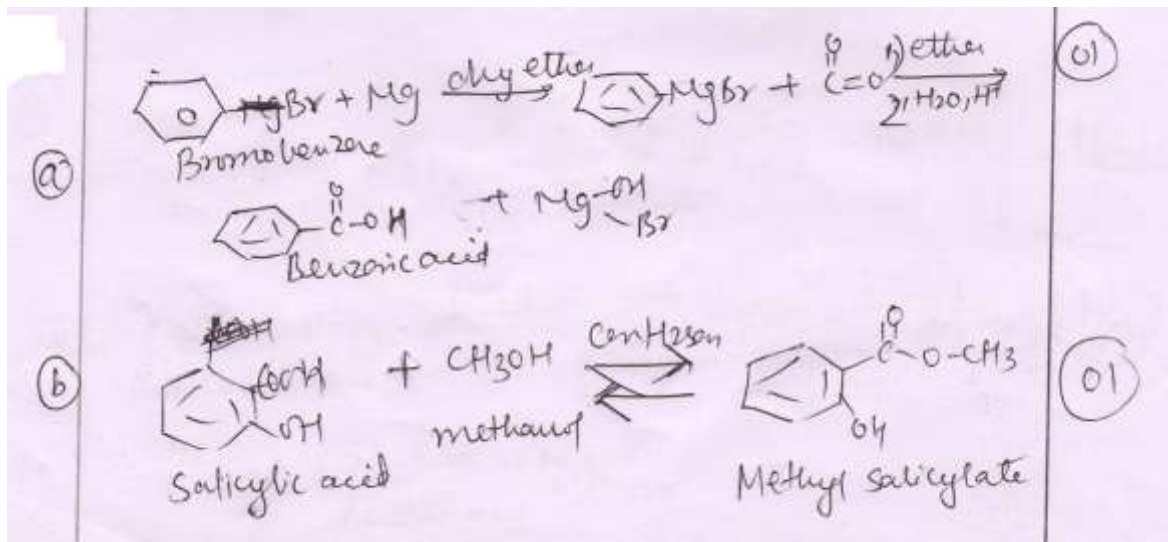 Br + Mg dry ether MgBr + O C=O 1) ether 2, H2O, H+ 01
Bromobenzene
a
O C-OH + Mg OH Br
Benzoic acid
b COOH OH + CH3OH Con H2SO4 O C-O-CH3 OH 01
methanol
Salicylic acid Methyl salicylate